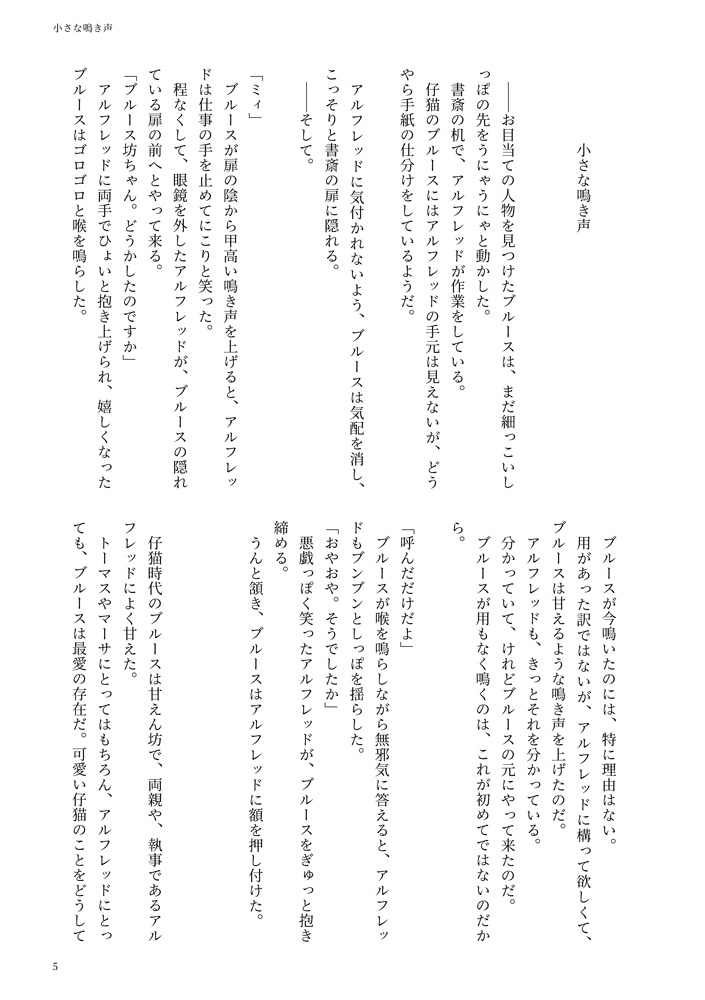 小さな鳴き声
小さな鳴き声
――お目当ての人物を見つけたブルースは、まだ細っこいし
っぽの先をうにゃうにゃと動かした。
書斎の机で、アルフレッドが作業をしている。
仔猫のブルースにはアルフレッドの手元は見えないが、どう
やら手紙の仕分けをしているようだ。
アルフレッドに気付かれないよう、ブルースは気配を消し、
こっそりと書斎の扉に隠れる。
――そして。
「ミィ」
ブルースが扉の陰から甲高い鳴き声を上げると、アルフレッ
ドは仕事の手を止めてにこりと笑った。
程なくして、眼鏡を外したアルフレッドが、ブルースの隠れ
ている扉の前へとやって来る。
「ブルース坊ちゃん。どうかしたのですか」
アルフレッドに両手でひょいと抱き上げられ、嬉しくなった
ブルースはゴロゴロと喉を鳴らした。
ブルースが今鳴いたのには、特に理由はない。
用があった訳ではないが、アルフレッドに構って欲しくて、
ブルースは甘えるような鳴き声を上げたのだ。
アルフレッドも、きっとそれを分かっている。
分かっていて、けれどブルースの元にやって来たのだ。
ブルースが用もなく鳴くのは、これが初めてではないのだか
ら。
「呼んだだけだよ」
ブルースが喉を鳴らしながら無邪気に答えると、アルフレッ
ドもブンブンとしっぽを揺らした。
「おやおや。そうでしたか」
悪戯っぽく笑ったアルフレッドが、ブルースをぎゅっと抱き
締める。
うんと頷き、ブルースはアルフレッドに額を押し付けた。
仔猫時代のブルースは甘えん坊で、両親や、執事であるアル
フレッドによく甘えた。
トーマスやマーサにとってはもちろん、アルフレッドにとっ
ても、ブルースは最愛の存在だ。可愛い仔猫のことをどうして
5